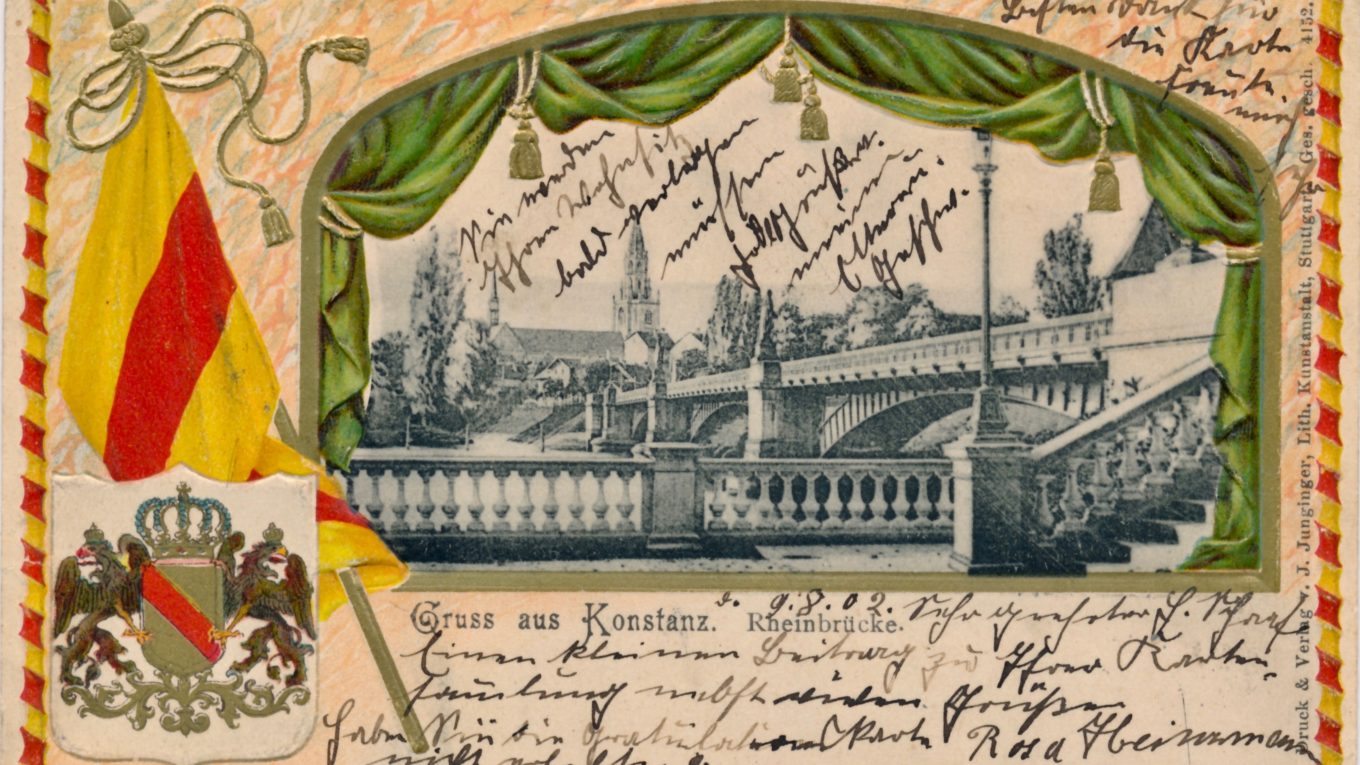 Besten Dank für
die Karte
freute
mich
Sie werden
Ihren Wohnsitz
bald verlegen
müssen
grüßt.
meinen
Eltern u.
Geschw.
Gruss aus Konstanz. Rheinbrücke.
d. 9.8.02. Sehr geehrter H. Schaaf
Einen kleinen Beitrag zu Ihrer Karten-
samlung nebst vielen Grüßen
Haben Sie die Gratulations Karte Rosa Heinzmann
nicht
Druck & Verlag v. J. Junginger, Lith. Kunstanstalt, Stuttgart. Ges. gesch. 4152.